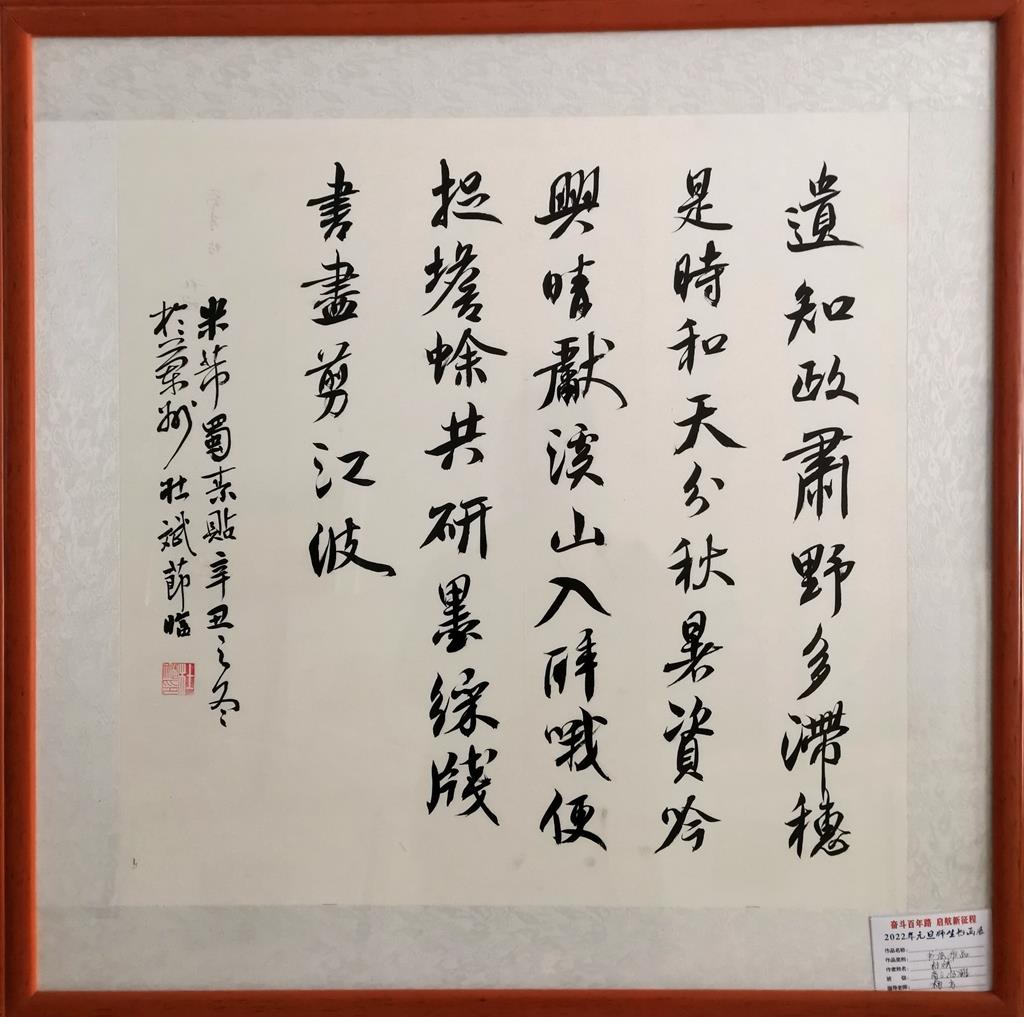 遺知政肅野多滯穗
是時和天分秋暑資吟
興晴獻溪山入醉哦便
捉蟾蜍共研墨綵牋
書盡剪江波
米芾蜀素貼辛丑之冬
於蘭州杜斌節臨
奋斗百年路 启航新征程
2022年元旦师生书画展
作品名称:
作品类别: 书法作品
作者姓名: 杜斌
班 级:
指导老师: